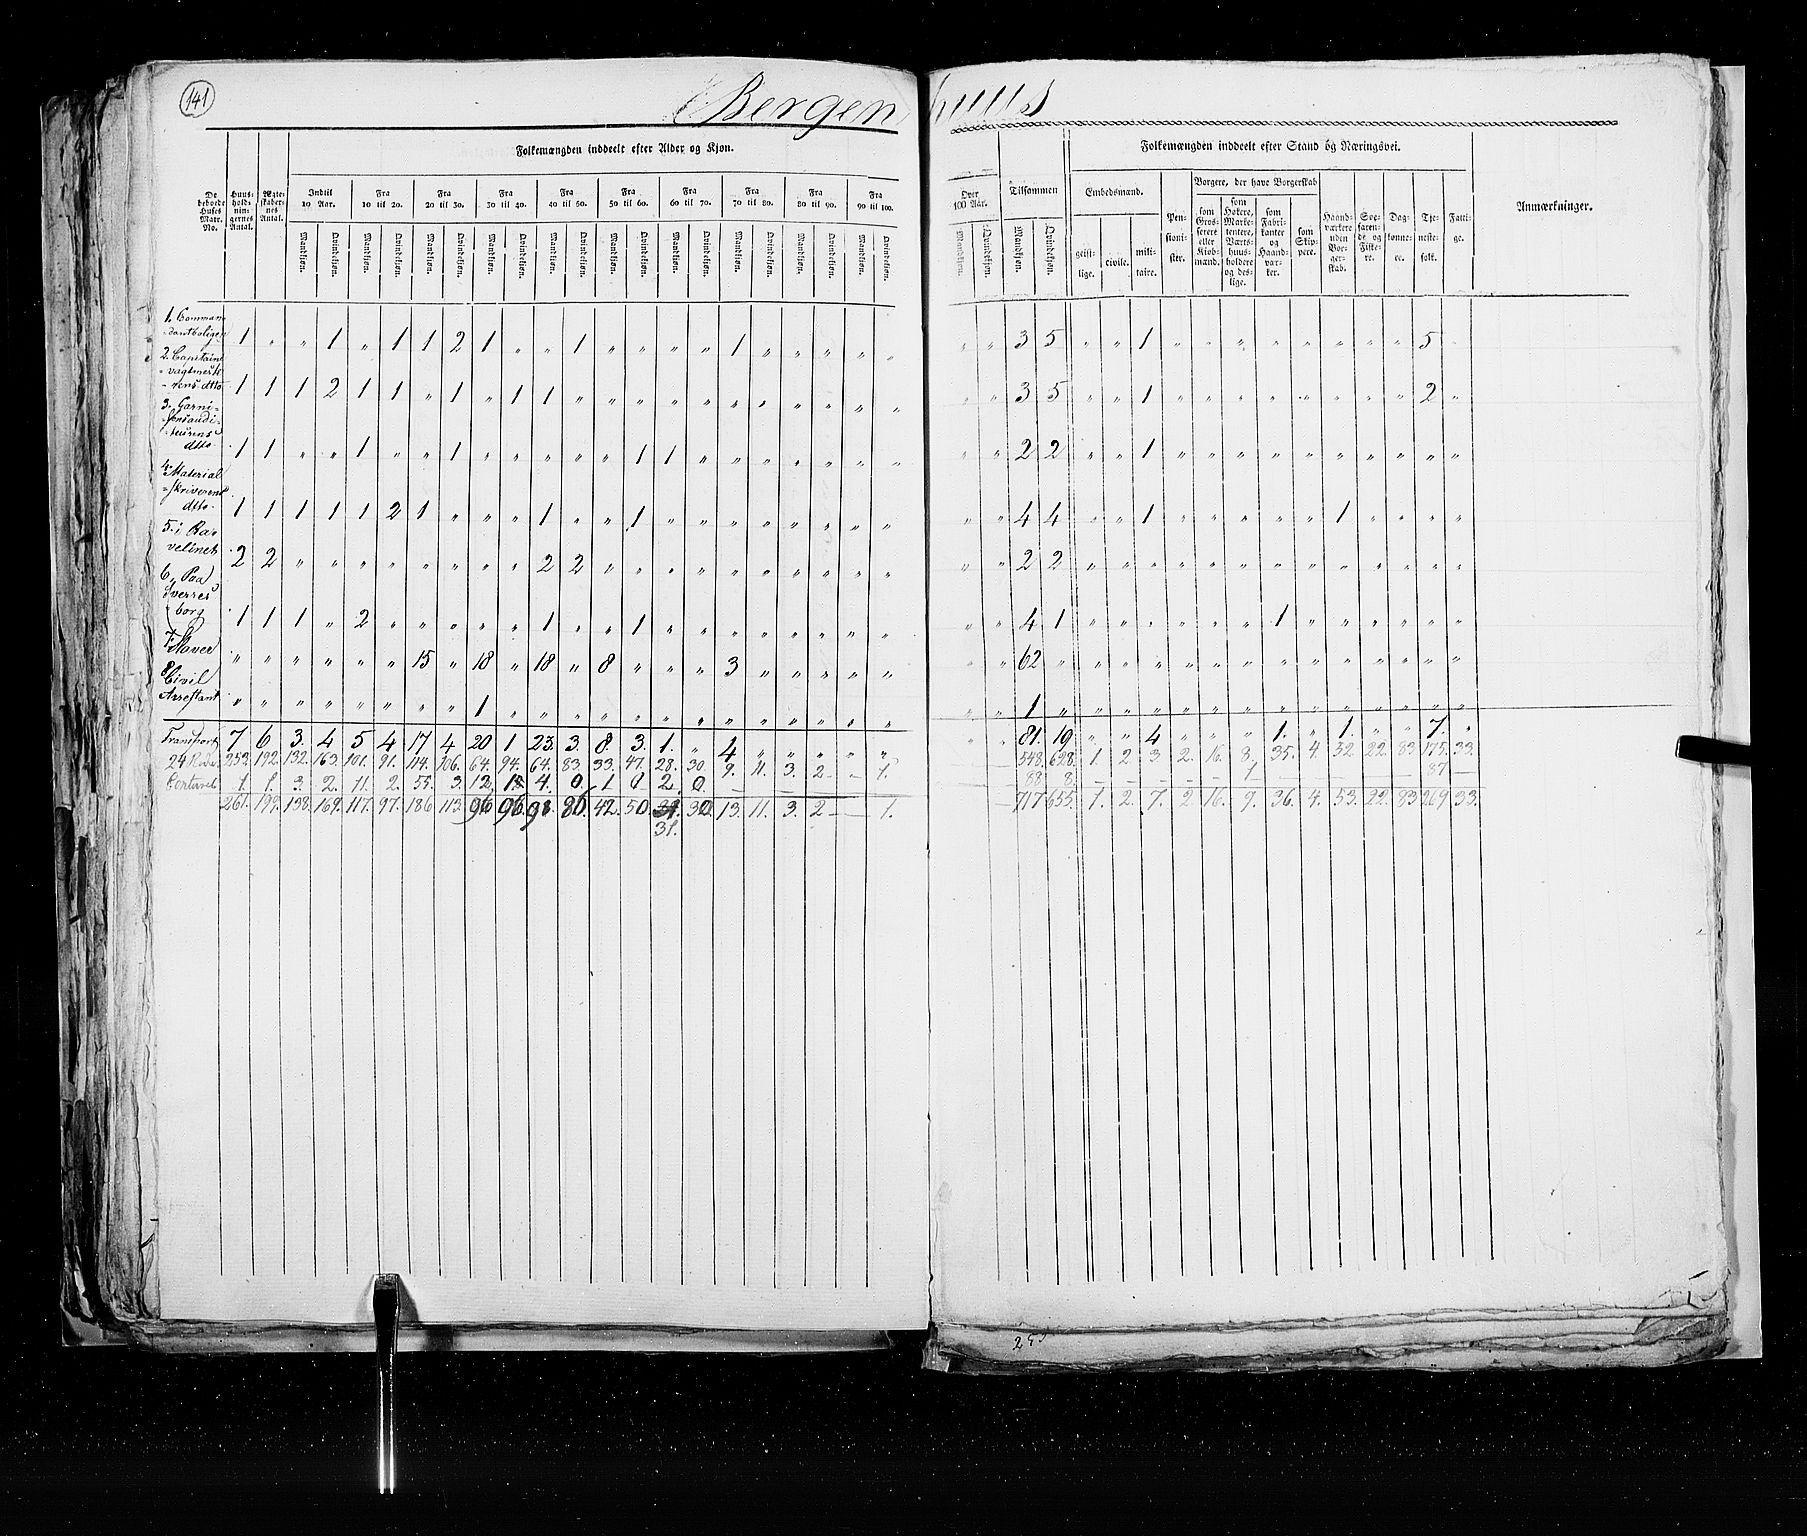 141
Bergenhuus
Folkemængden inddeelt efter Alder og Kjøn.
Folkemængden inddeelt efter Stand og Næringsvei.
De beboede Huses Matr. No.
Huusholdningernes Antal.
Ægteskabernes Antal.
Indtil 10 Aar.
Fra 10 til 20.
Fra 20 til 30.
Fra 30 til 40.
Fra 40 til 50.
Fra 50 til 60.
Fra 60 til 70.
Fra 70 til 80.
Fra 80 til 90.
Fra 90 til 100.
Over 100 Aar.
Tilsammen
Mandkjøn. Qvindekjøn. Mandkjøn. Qvindekjøn. Mandkjøn. Qvindekjøn. Mandkjøn. Qvindekjøn. Mandkjøn. Qvindekjøn. Mandkjøn. Qvindekjøn. Mandkjøn. Qvindekjøn. Mandkjøn. Qvindekjøn. Mandkjøn. Qvindekjøn. Mandkjøn. Qvindekjøn. Mandkjøn. Qvindekjøn. Mandkjøn. Qvindekjøn.
Embedsmænd.
geistlige.
civile.
militaire.
Pensionister.
Borgere, der have Borgerskab
som Grosserere eller Kiøbmænd.
som Høkere, Marketentere, Værtshuusholdere og deslige.
som Fabrikanter og Haandværker.
som Skippere.
Haandværkere uden Borgerskab.
Søefarende og Fiskere.
Dagkonnere.
Tjenestefolk.
Fattige.
Anmærkninger.
1. Commandantboligen 1 „ „ 1 „ 1 1 2 1 „ „ 1 „ „ „ „ 1 „ „ „ „ „ „ „ 3 5 „ „ 1 „ „ „ „ „ „ „ „ 5 „
2. Capitain vagtmesterens dtto 1 1 1 2 1 1 „ 1 „ 1 1 „ „ „ „ „ „ „ „ „ „ „ „ „ 3 5 „ „ 1 „ „ „ „ „ „ „ „ 2 „
3. Garnisonsauditeurens dtto 1 1 „ „ 1 „ „ 1 „ „ „ „ „ 1 1 „ „ „ „ „ „ „ „ „ 2 2 „ „ 1 „ „ „ „ „ „ „ „ „ „
4. Materialskriverens dtto 1 1 1 1 1 2 1 „ „ „ 1 „ „ 1 „ „ „ „ „ „ „ „ „ „ 4 4 „ „ 1 „ „ „ „ „ 1 „ „ „ „
5. i Ravelinet 2 2 „ „ „ „ „ „ „ „ 2 2 „ „ „ „ „ „ „ „ „ „ „ „ 2 2 „ „ „ „ „ „ „ „ „ „ „ „ „
6. Paa Sverresborg 1 1 1 „ 2 „ „ „ „ „ 1 „ „ 1 „ „ „ „ „ „ „ „ „ „ 4 1 „ „ „ „ „ „ 1 „ „ „ „ „ „
7. Slaver „ „ „ „ „ „ 15 „ 18 „ 18 „ 8 „ „ „ 3 „ „ „ „ „ „ „ 62 „ „ „ „ „ „ „ „ „ „ „ „ „ „
8 Civil Arrestant „ „ „ „ „ „ „ „ 1 „ „ „ „ „ „ „ „ „ „ „ „ „ „ „ 1 „ „ „ „ „ „ „ „ „ „ „ „ „ „
Transport 7 6 3. 4 5 4 17 4 20 1 23. 3. 8. 3. 1. „ 4 „ „ „ „ „ „ „ 81. 19 „ „ 4 „ „ „ 1. „ 1. „ „ 7. „
253. 192. 132. 163. 101. 91. 114. 106. 64. 94. 64. 83. 33. 47. 28. 30 9. 11. 3. 2 – 1. – – 548. 628. 1. 2 3. 2. 16. 8. 35. 4. 52. 22. 83. 175. 33.
1. 1. 3. 2. 11. 2. 55. 3. 12. 4. 0. 1 0. 2. 0. 88. 8. 1 87
261. 199. 138. 169. 117. 97. 186 113. 96 96. 91. 86. 42. 50. 30. 13. 11. 3. 2 – – 1. 717 655. 1. 2. 7. 2 16. 9. 36. 4. 53. 22. 83 269 33.
31.